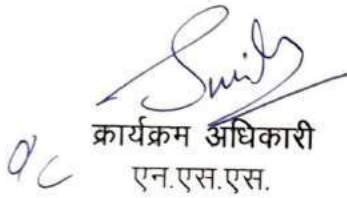 क्रार्यक्रम अधिकारी
एन.एस.एस.